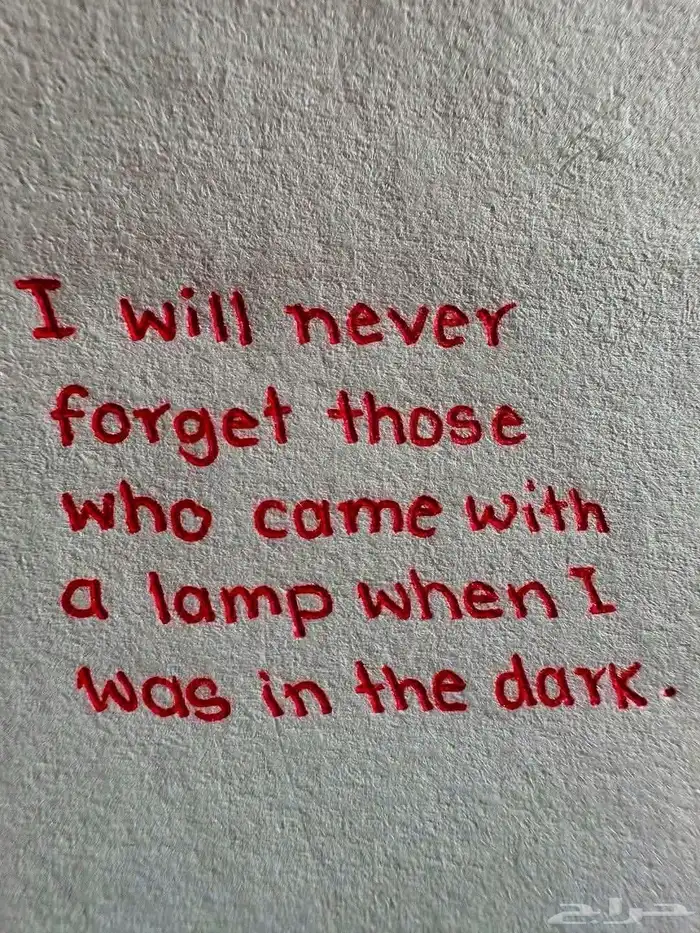 I will never
forget those
who came with
a lamp when I
was in the dark.
حراج